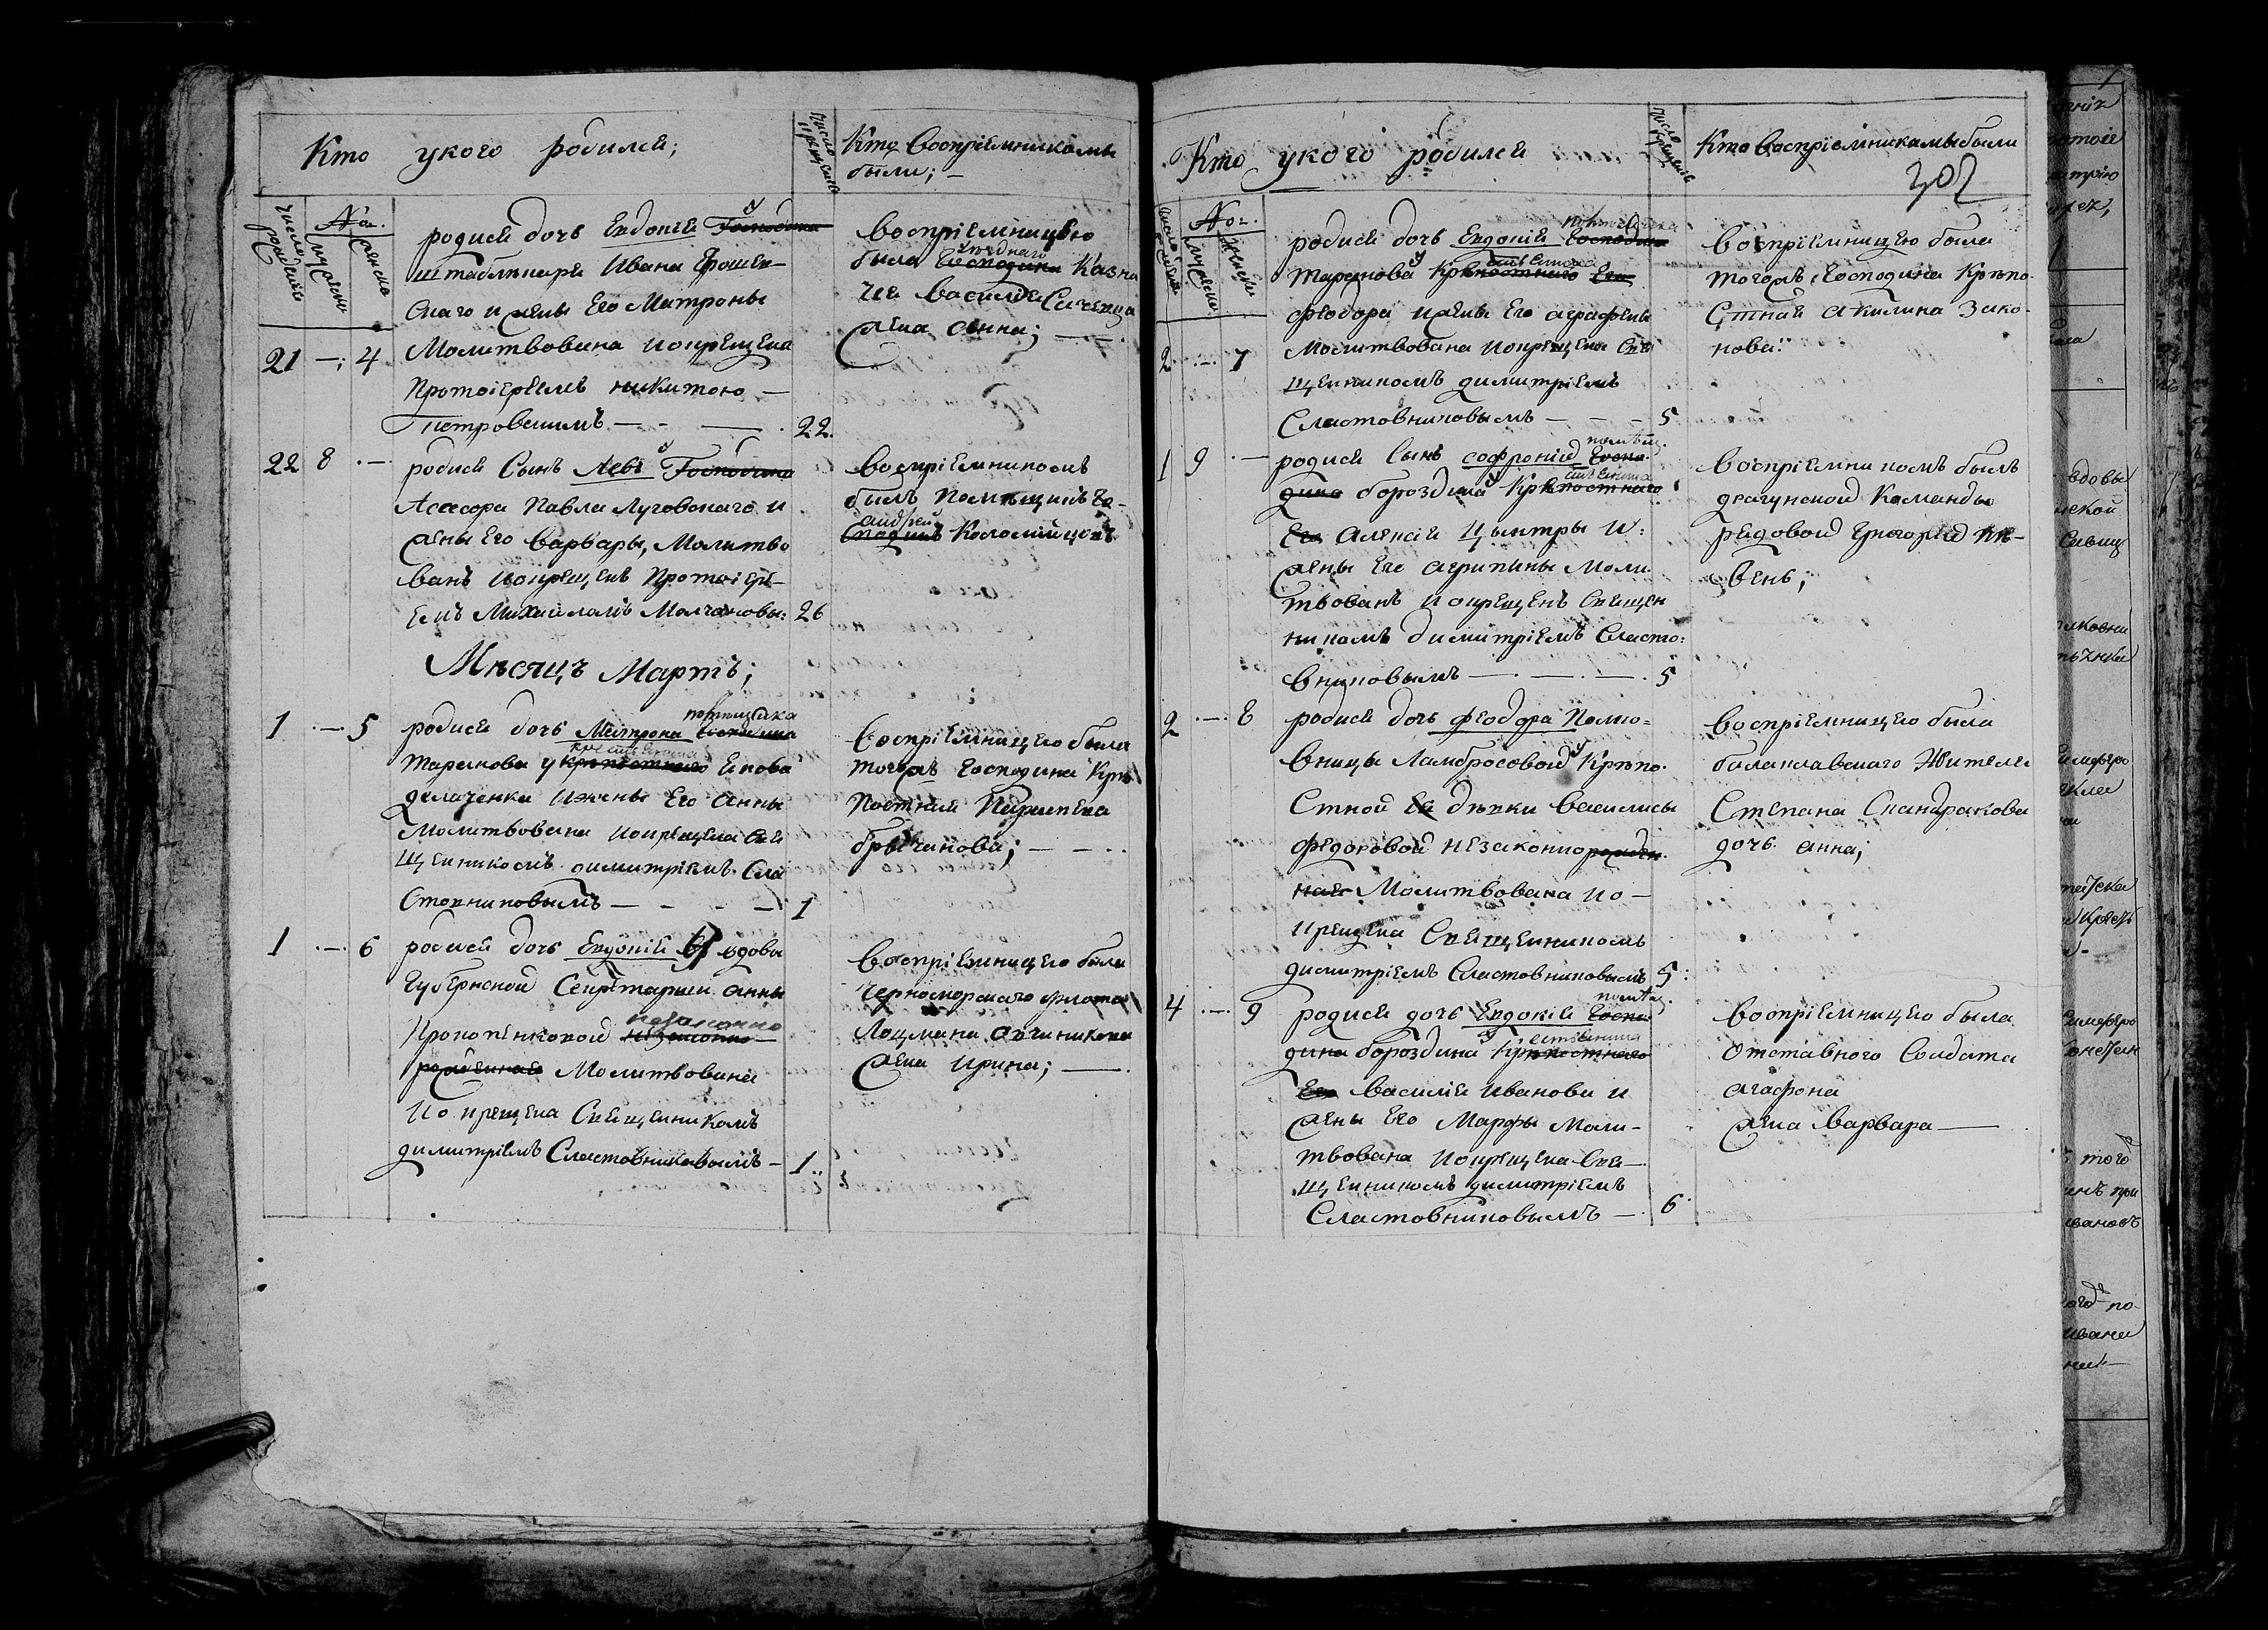 Кто укого родился;
число крещенія
Кто воспріемниками
были; —
число рожденія
№.
мужеска
женска
родися дочь Евдокія у Господина
штаблекаря Ивана Ерошев-
скаго и жены Его Матроны
21 — 4 Молитвована и окрещена
Протоіереемъ никитою —
Петровскимъ — 22.
воспріемницею
уѣзднаго
была Господина Казна
чея василія
жена анна; —
22 8 — родися Сынъ Левъ у Господина
Асессора Павла Луговскаго и
жены Его варвары, Молитво
ванъ и окрещенъ Протоіере-
емъ Михайломъ Молчановы: 26
воспріемникомъ
былъ Помѣщикъ Го-
андрей
сподинъ Коломійцовъ
Мѣсяцъ Мартъ;
помѣщика
1 — 5 родися дочь Матрона Господина
крестьянина
Таранова у крѣпостнаго Якова
дклаченка и жены Его анны
Молитвована и окрещена Свя
щенникомъ димитріемъ Сла
стовниковымъ — 1
воспріемницею была
тогожъ Господина Крѣ
постная Параскева
1 — 6 родися дочь Евдокія у вдовы
Губернской Секретарши анны
незаконно
Прокопенковой незаконно
рожденная Молитвована
и о крещена Священникомъ
димитріемъ Сластовниковымъ — 1
воспріемницею была
Черноморскаго флота
Лоцмана овчиникова
жена ирина; —
Кто укого родился
число крещенія
Кто воспріемниками были
302
число рожденія
№.
мужеска
женска
помѣщика
родися дочь Евдокія Господина
Таранова у Крѣпостнаго Его
феодора и жены Его аграфены
2 — 7 Молитвована и окрещена Свя
щенникомъ димитріемъ
Сластовниковымъ — 5
воспріемницею была
тогожъ Господина Крѣпо-
стная акилина Зако-
нова:
помѣщ.
1 9 — родися Сынъ софроній Госпо-
дина бороздина у Крѣпостнаго
Его алексія Цымтры и
жены Его агрипины Моли
твованъ и окрещенъ Священ
никомъ димитріемъ Сласто:
вниковымъ — 5
воспріемникомъ былъ
драгунской Команды
рядовой григорій пи-
вень;
2 — 8 родися дочь феодора Полко-
вницы Ламбросовой у Крѣпо-
стной Ея дѣвки василисы
федоровой незаконнорожден-
ная Молитвована и о-
крещена Священникомъ
димитріемъ Сластовниковымъ 5:
воспріемницею была
балаклавскаго Жителя
Степана Скандракова
дочь анна;
помѣщ.
4 — 9 родися дочь Евдокія Госпо-
дина бороздина у Крѣпостнаго
Его василія иванова и
жены Его Марфы Моли-
твована и окрещена Свя-
щенникомъ димитріемъ
Сластовниковымъ — 6
воспріемницею была
отставного Солдата
агафона
жена варвара —